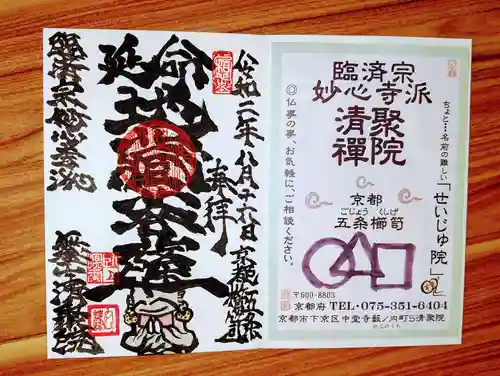 令和二年八月十六日 京都櫛笥
奉拝
延命地蔵菩薩
臨済宗妙心寺派
聚清禅院
臨済宗
妙心寺派
聚院
清禪
ちょと…名前の難しい「せいじゅ院」
◎仏事の事、お気軽に、ご相談ください。
京都
ごじょう くしげ
五条櫛笥
〒600-8803
京都府 TEL・075-351-6404
京都市下京区中堂寺藪ノ内町5清聚院